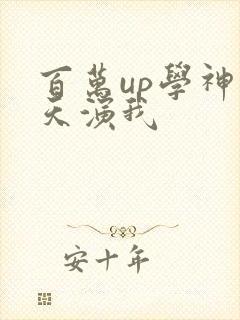 百萬up學神
天演我
安十年